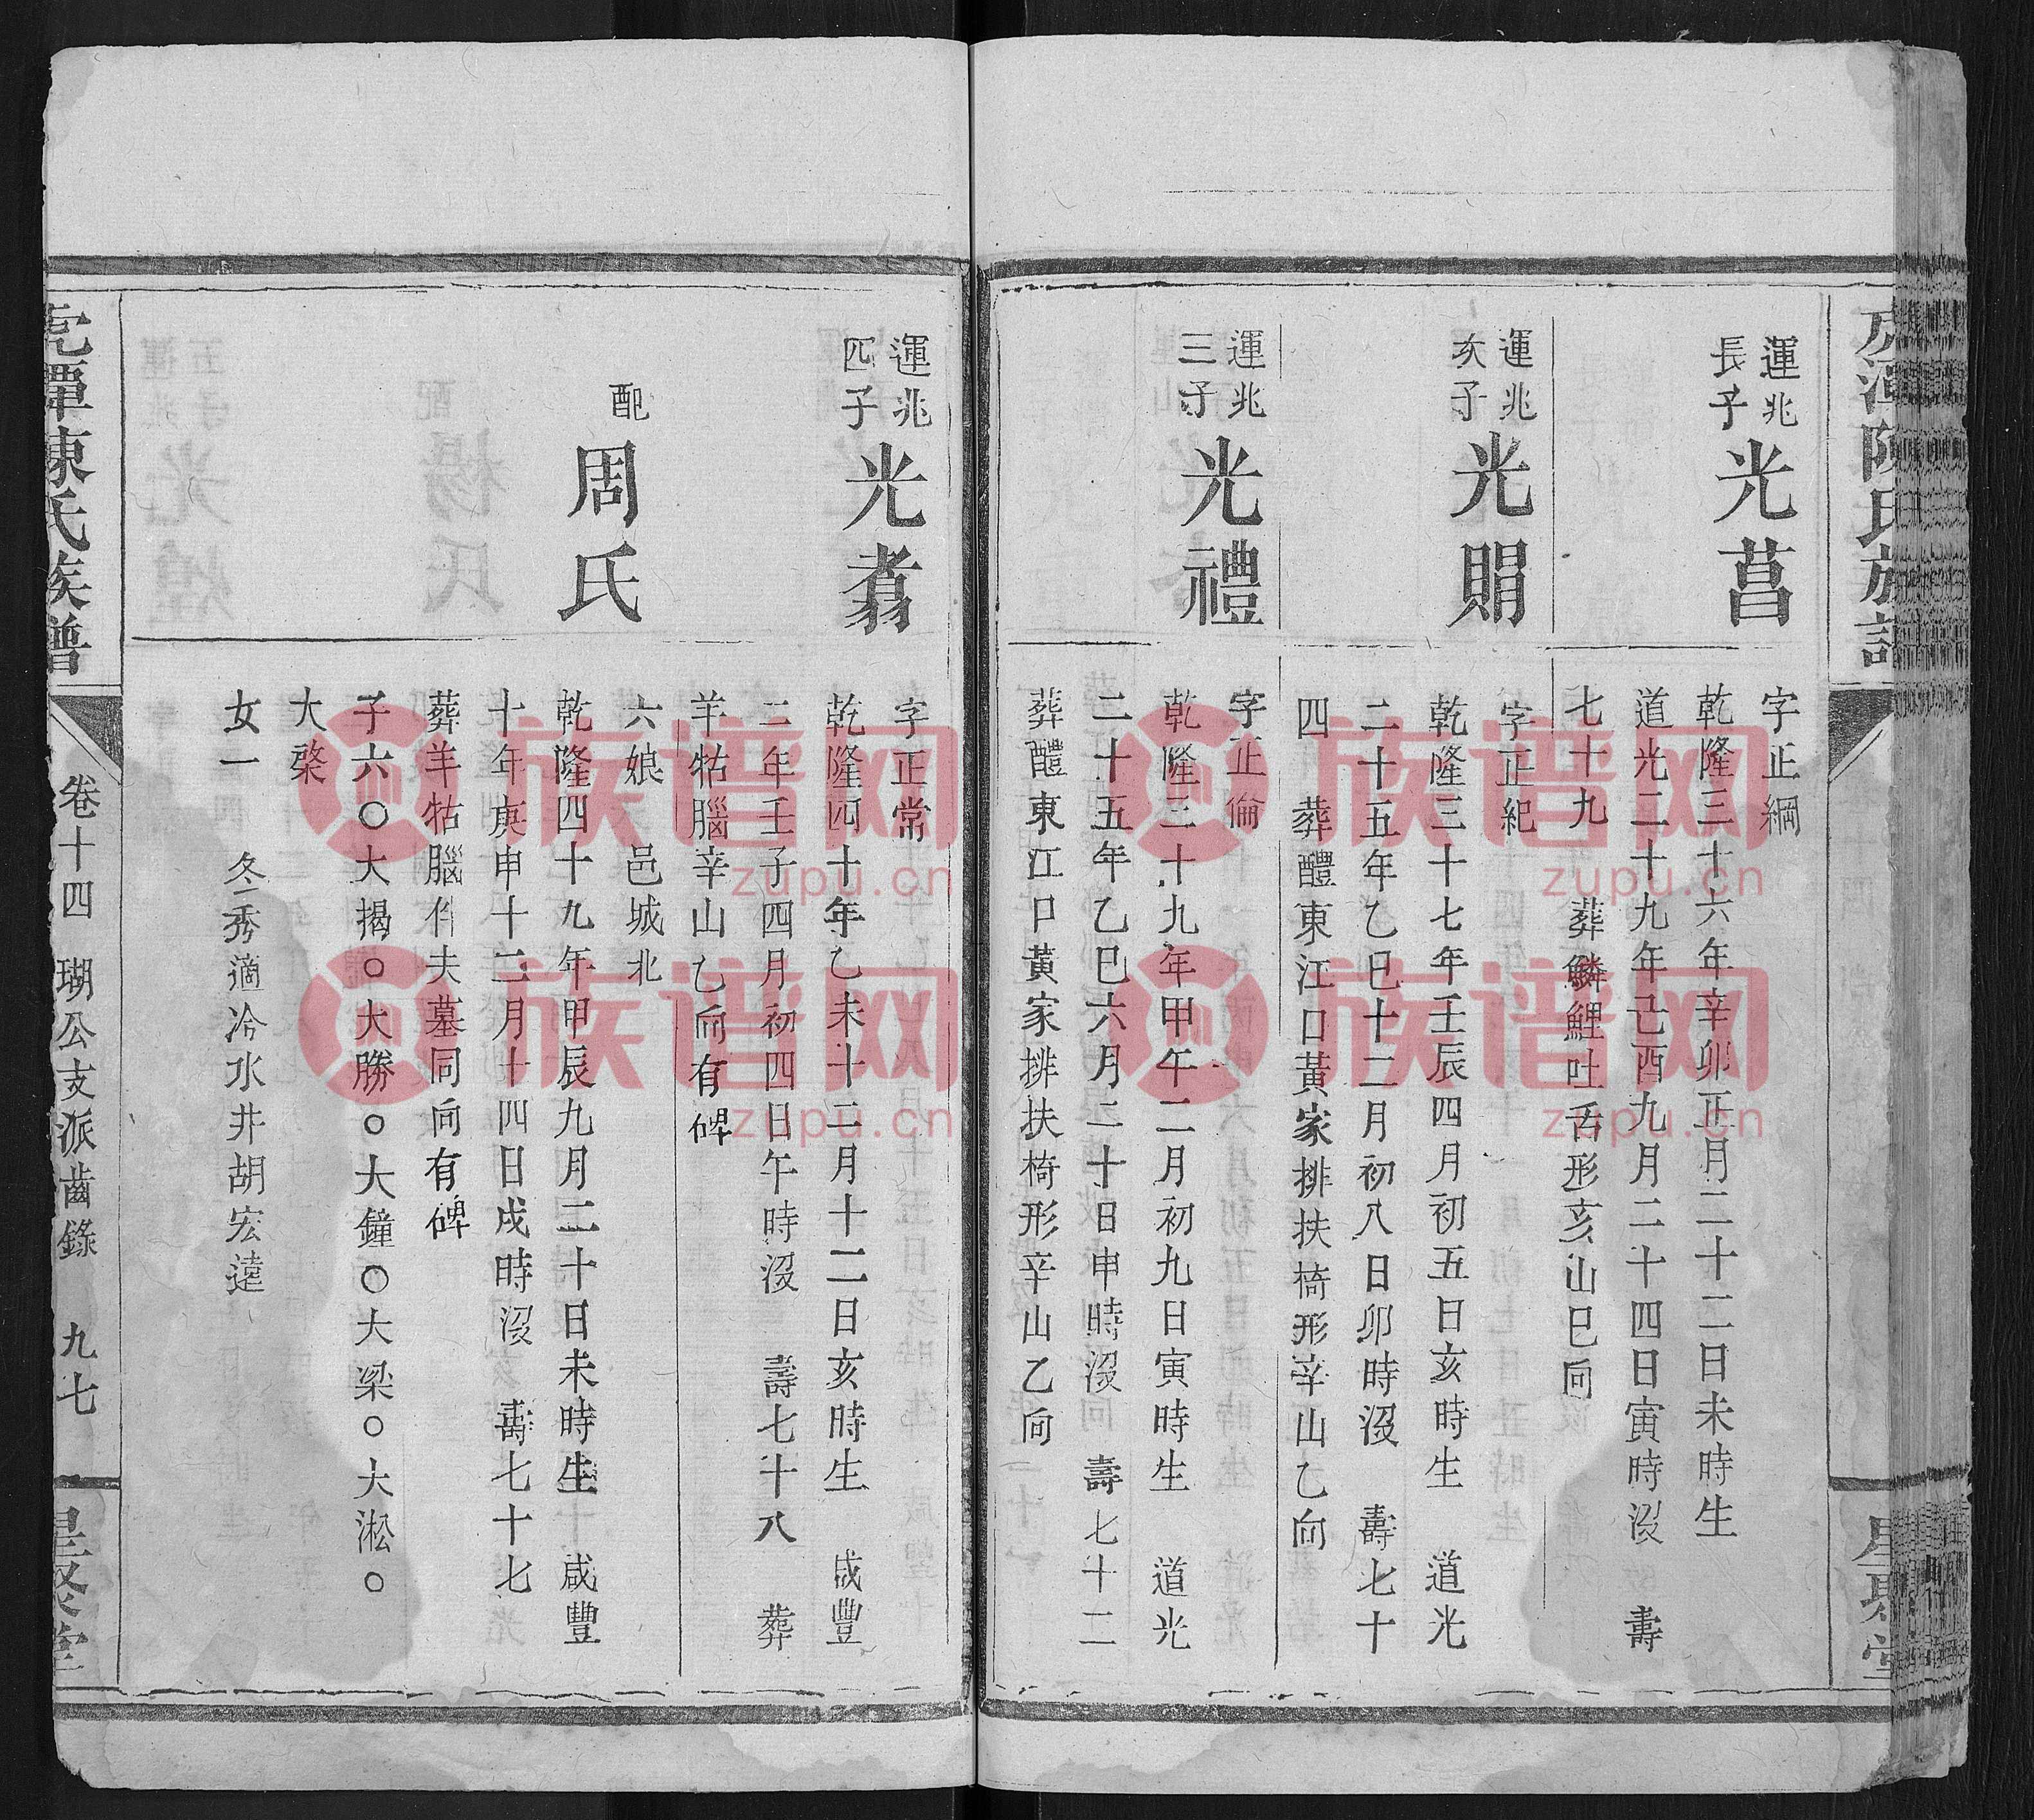 運兆
長子
光菖
字正綱
乾隆三十六年辛卯正月二十二日未時生
道光二十九年己酉九月二十四日寅時沒　壽
七十九　葬鱗鯉吐舌形亥山巳向
運兆
次子
光賏
字正紀
乾隆三十七年壬辰四月初五日亥時生　道光
二十五年乙巳十二月初八日卯時沒　壽七十
四　葬醴東江口黃家排扶椅形辛山乙向
運兆
三子
光禮
字正倫
乾隆三十九年甲午二月初九日寅時生　道光
二十五年乙巳六月二十日申時沒　壽七十二
葬醴東江口黃家排扶椅形辛山乙向
運兆
四子
光翥
字正常
乾隆四十年乙未十二月十二日亥時生　咸豐
二年壬子四月初四日午時沒　壽七十八　葬
羊牯腦辛山乙向有碑
配
周氏
六娘　邑城北
乾隆四十九年甲辰九月二十日未時生　咸豐
十年庚申十二月十四日戌時沒　壽七十七
葬羊牯腦什夫墓同向有碑
子六○大揭○大勝○大鐘○大梁○大淞○
大棨
女一　冬秀適冷水井胡宏達
虎潭陳氏族譜
卷十四　瑚公支派齒錄　九七
星聚堂
族谱网
zupu.cn
族谱网
zupu.cn
族谱网
zupu.cn
族谱网
zupu.cn